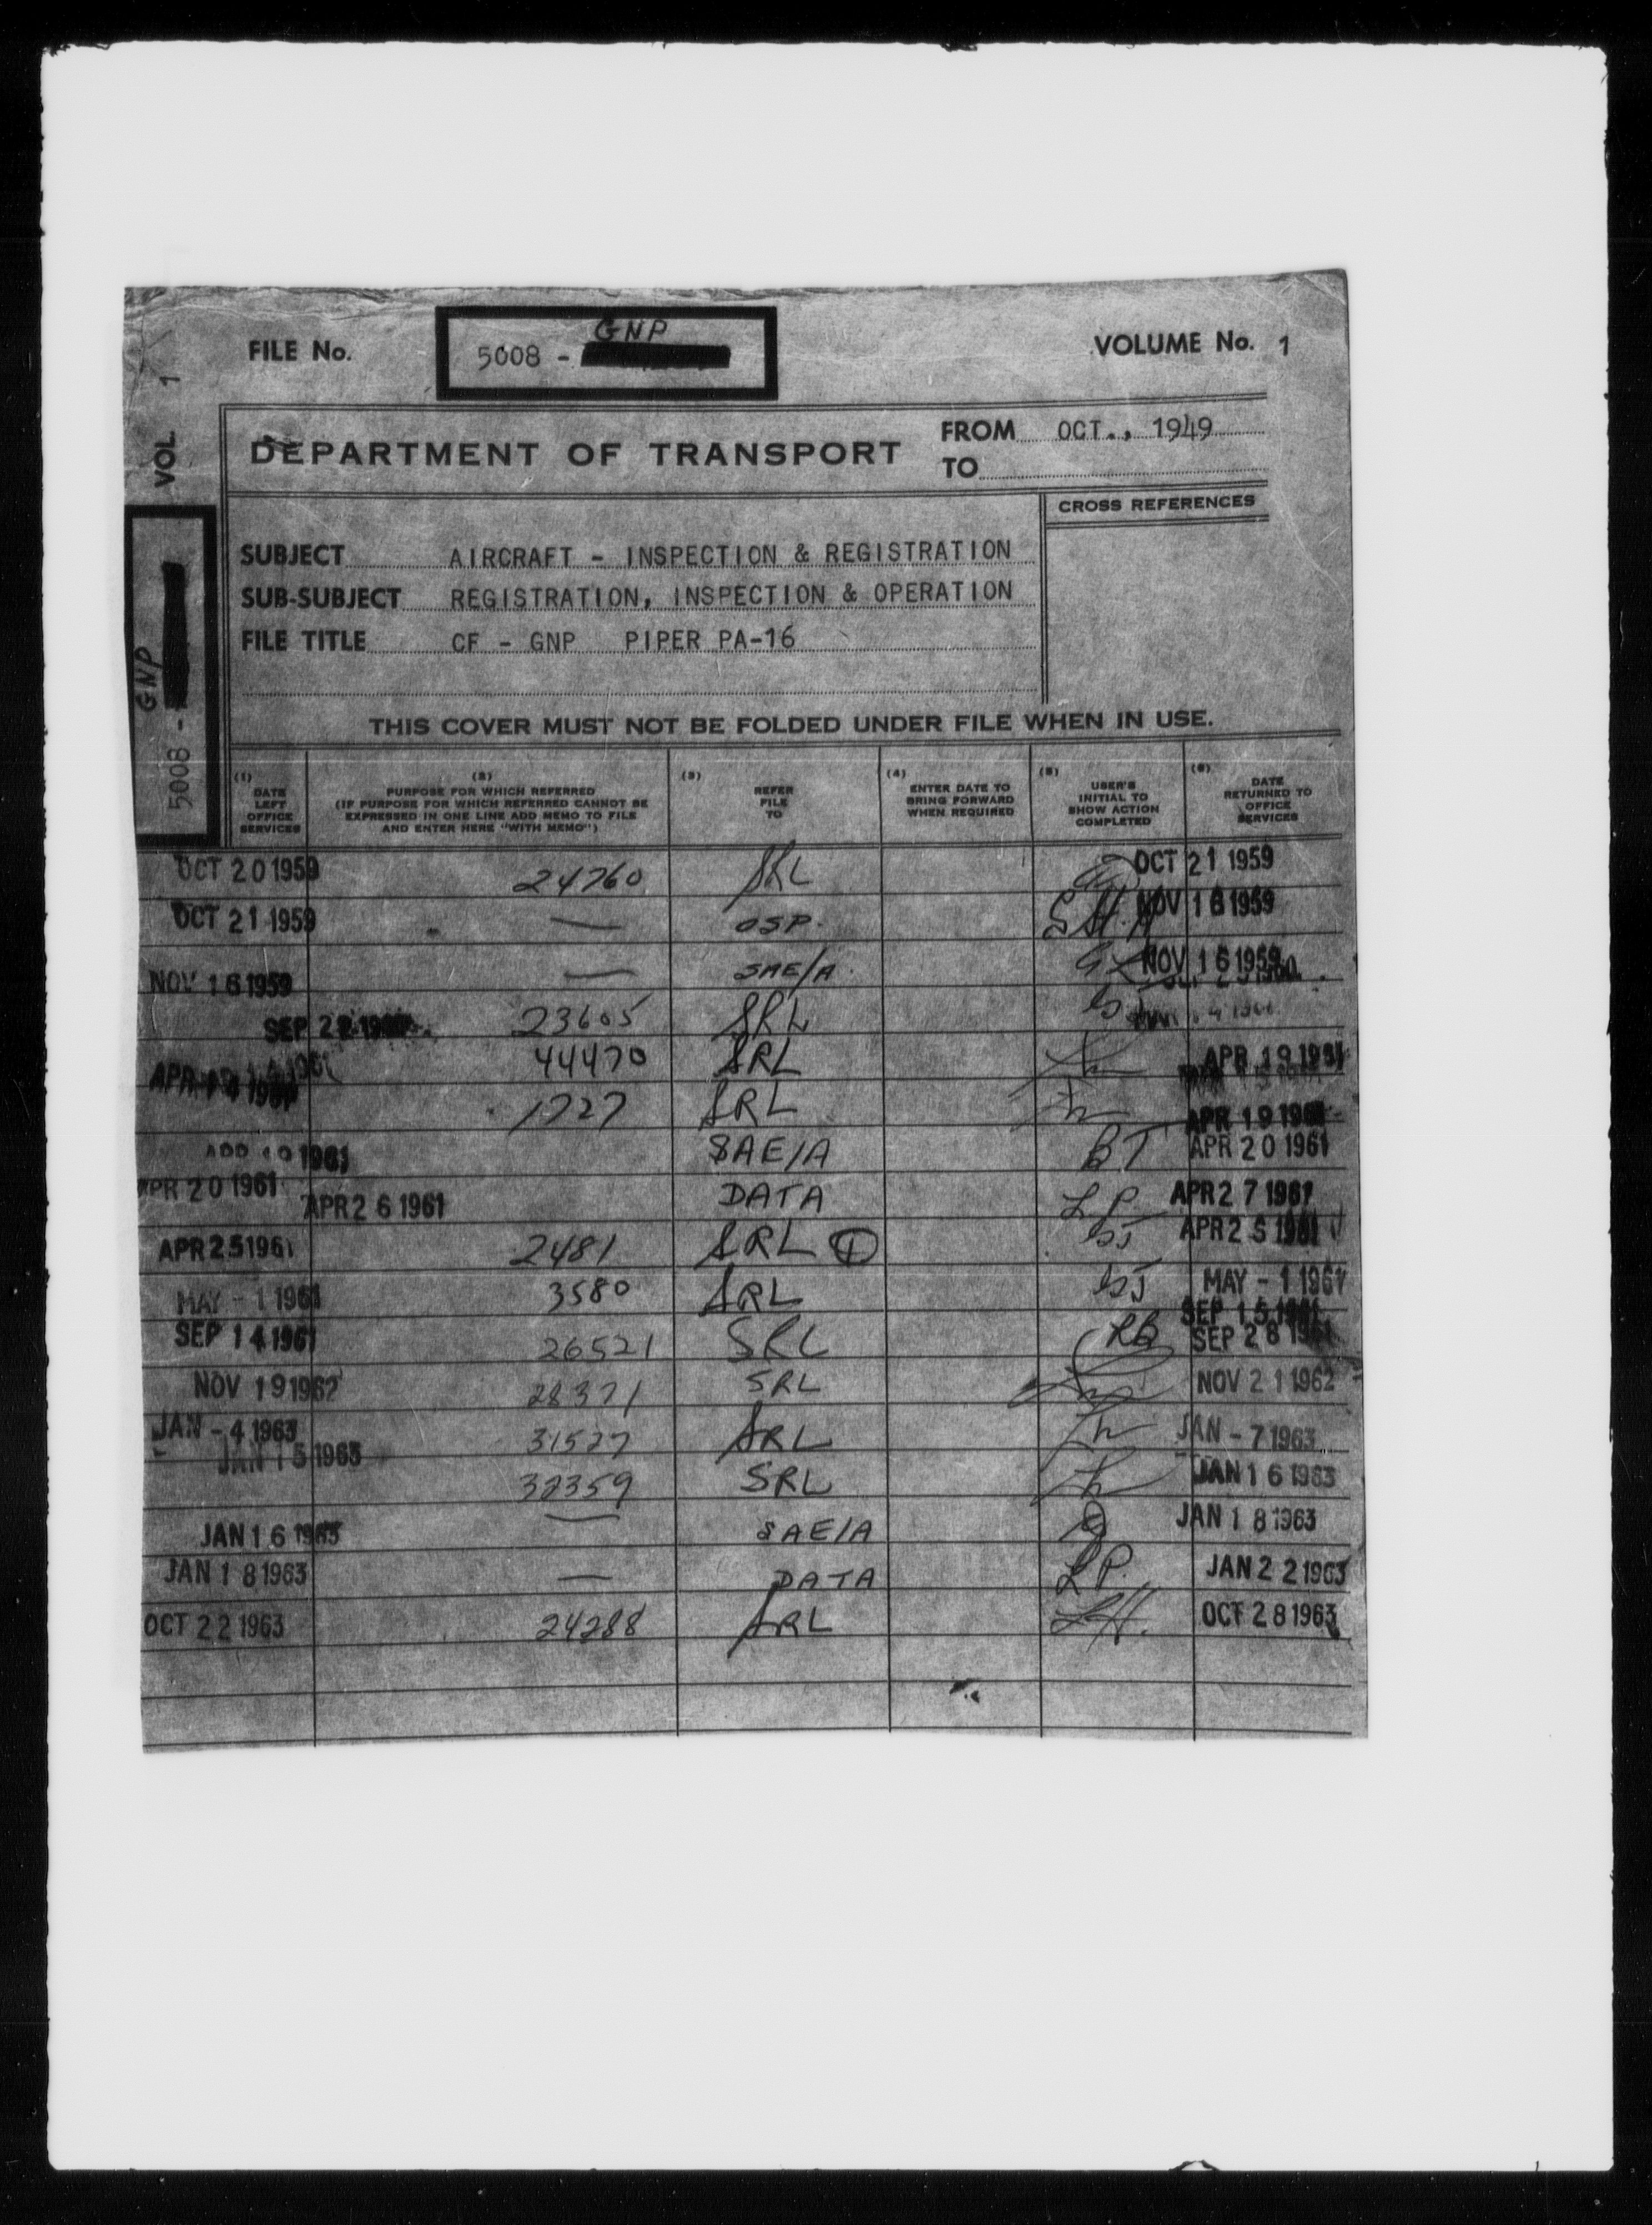 GNP
FILE No. 5008 - VOLUME No. 1
VOL 1
FROM OCT., 1949
DEPARTMENT OF TRANSPORT
TO
CROSS REFERENCES
SUBJECT AIRCRAFT - INSPECTION & REGISTRATION
SUB-SUBJECT REGISTRATION, INSPECTION & OPERATION
FILE TITLE CF - GNP PIPER PA-16
5008 - GNP
THIS COVER MUST NOT BE FOLDED UNDER FILE WHEN IN USE.
(1) DATE LEFT OFFICE SERVICES
(2) PURPOSE FOR WHICH REFERRED (IF PURPOSE FOR WHICH REFERRED CANNOT BE EXPRESSED IN ONE LINE ADD MEMO TO FILE AND ENTER HERE "WITH MEMO")
(3) REFER FILE TO
(4) ENTER DATE TO BRING FORWARD WHEN REQUIRED
(5) USER'S INITIAL TO SHOW ACTION COMPLETED
(6) DATE RETURNED TO OFFICE SERVICES
OCT 20 1959 24760 SRL OCT 21 1959
OCT 21 1959 — OSP. NOV 16 1959
NOV 16 1959 — SAE/A. NOV 16 1959
SEP 22 23605 SRL
APR 14 1961 44470 SRL APR 19 1961
1727 SRL APR 19 1961
APR 19 1961 SAE/A BT APR 20 1961
APR 20 1961 APR 26 1961 DATA LP APR 27 1961
APR 25 1961 2481 SRL 1 APR 25 1961
MAY - 1 1961 3580 SRL MAY - 1 1961
SEP 14 1961 26521 SRL RB SEP 15 1961 SEP 28 1961
NOV 19 1962 28371 SRL NOV 21 1962
JAN - 4 1963 31527 SRL JAN - 7 1963
JAN 15 1963 32359 SRL JAN 16 1963
JAN 16 1963 — SAE/A JAN 18 1963
JAN 18 1963 — DATA LP. JAN 22 1963
OCT 22 1963 24288 SRL LH. OCT 28 1963